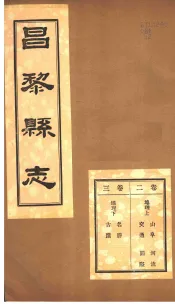 昌黎縣志
卷二
地理上
山阜 河流
交通
卷三
地理下
名勝
古蹟